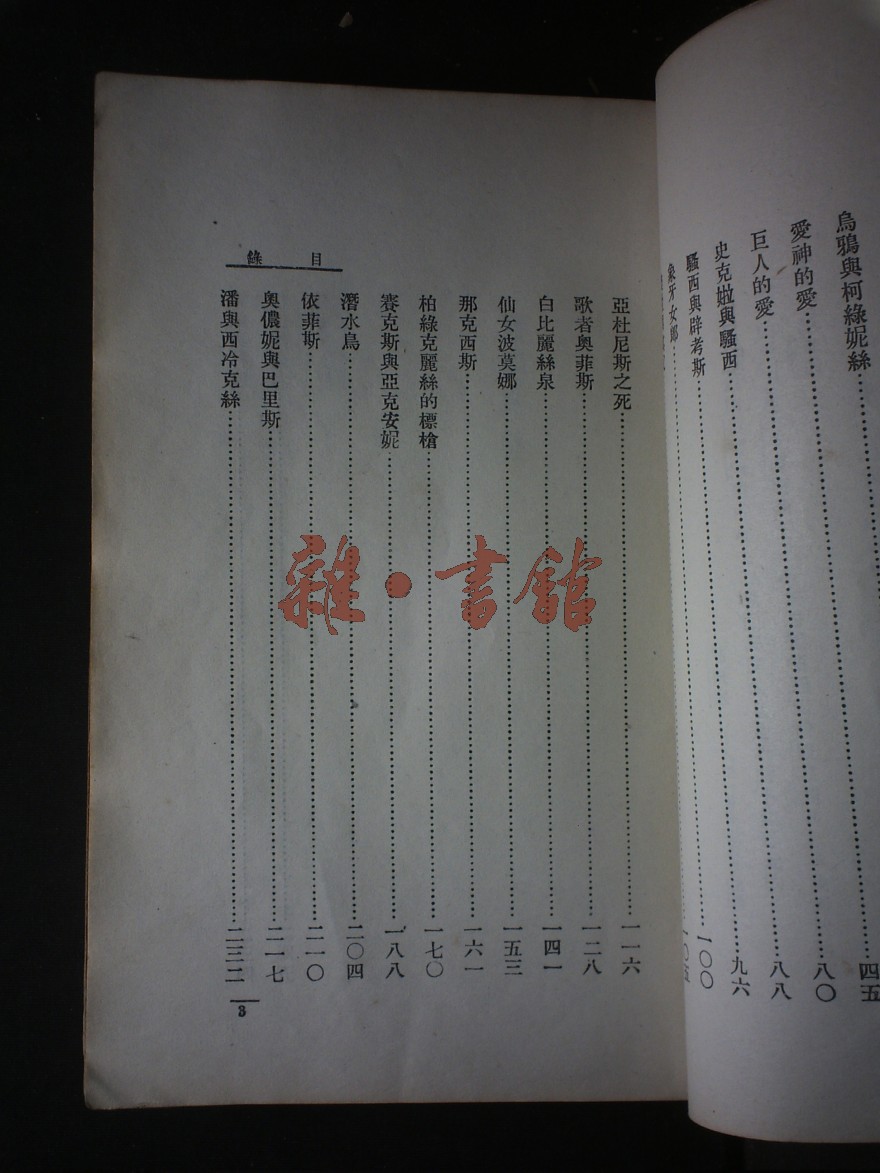 烏鴉與柯綠妮絲……四五
愛神的愛……八〇
巨人的愛……八八
史克娫與騷西……九六
騷西與辟考斯……一〇〇
象牙女郎……一〇五
目錄
亞杜尼斯之死……一一六
歌者奧菲斯……一二八
白比麗絲泉……一四一
仙女波莫娜……一五三
那克西斯……一六一
柏綠克麗絲的標槍……一七〇
賽克斯與亞克安妮……一八八
潛水鳥……二〇四
依菲斯……二一〇
奧儂妮與巴里斯……二一七
潘與西冷克絲……二三二
3
雜·書館